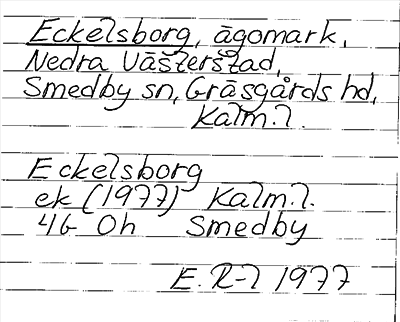 Eckelsborg, ägomark,
Nedra Västerstad,
Smedby sn, Gräsgårds hd,
Kalm. l.
Eckelsborg
ek (1977) Kalm. l.
4G Oh Smedby
E. R-l 1977